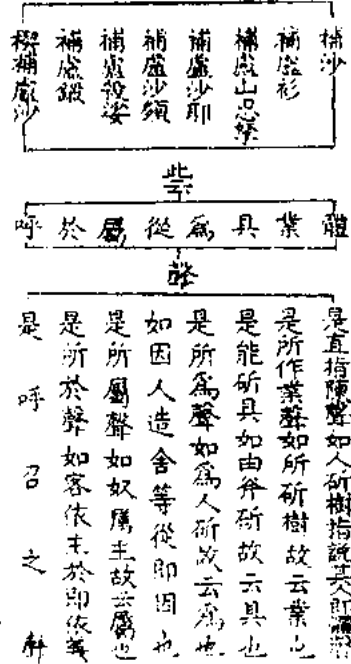 補沙
補盧衫
補盧
補盧沙耶
補盧沙頞
補盧殺娑
補盧鍛
補盧沙
體業具為從屬於呼
聲
是直指陳聲如人斫樹指說其人即
是所作業聲如所斫樹故云業也
是能斫具如由斧斫故云具也
是所為聲如為人斫故云為也
如因人造舍等從即因也
是所屬聲如奴屬主故云屬也
是所於聲如客依主於即依義
是呼召之聲